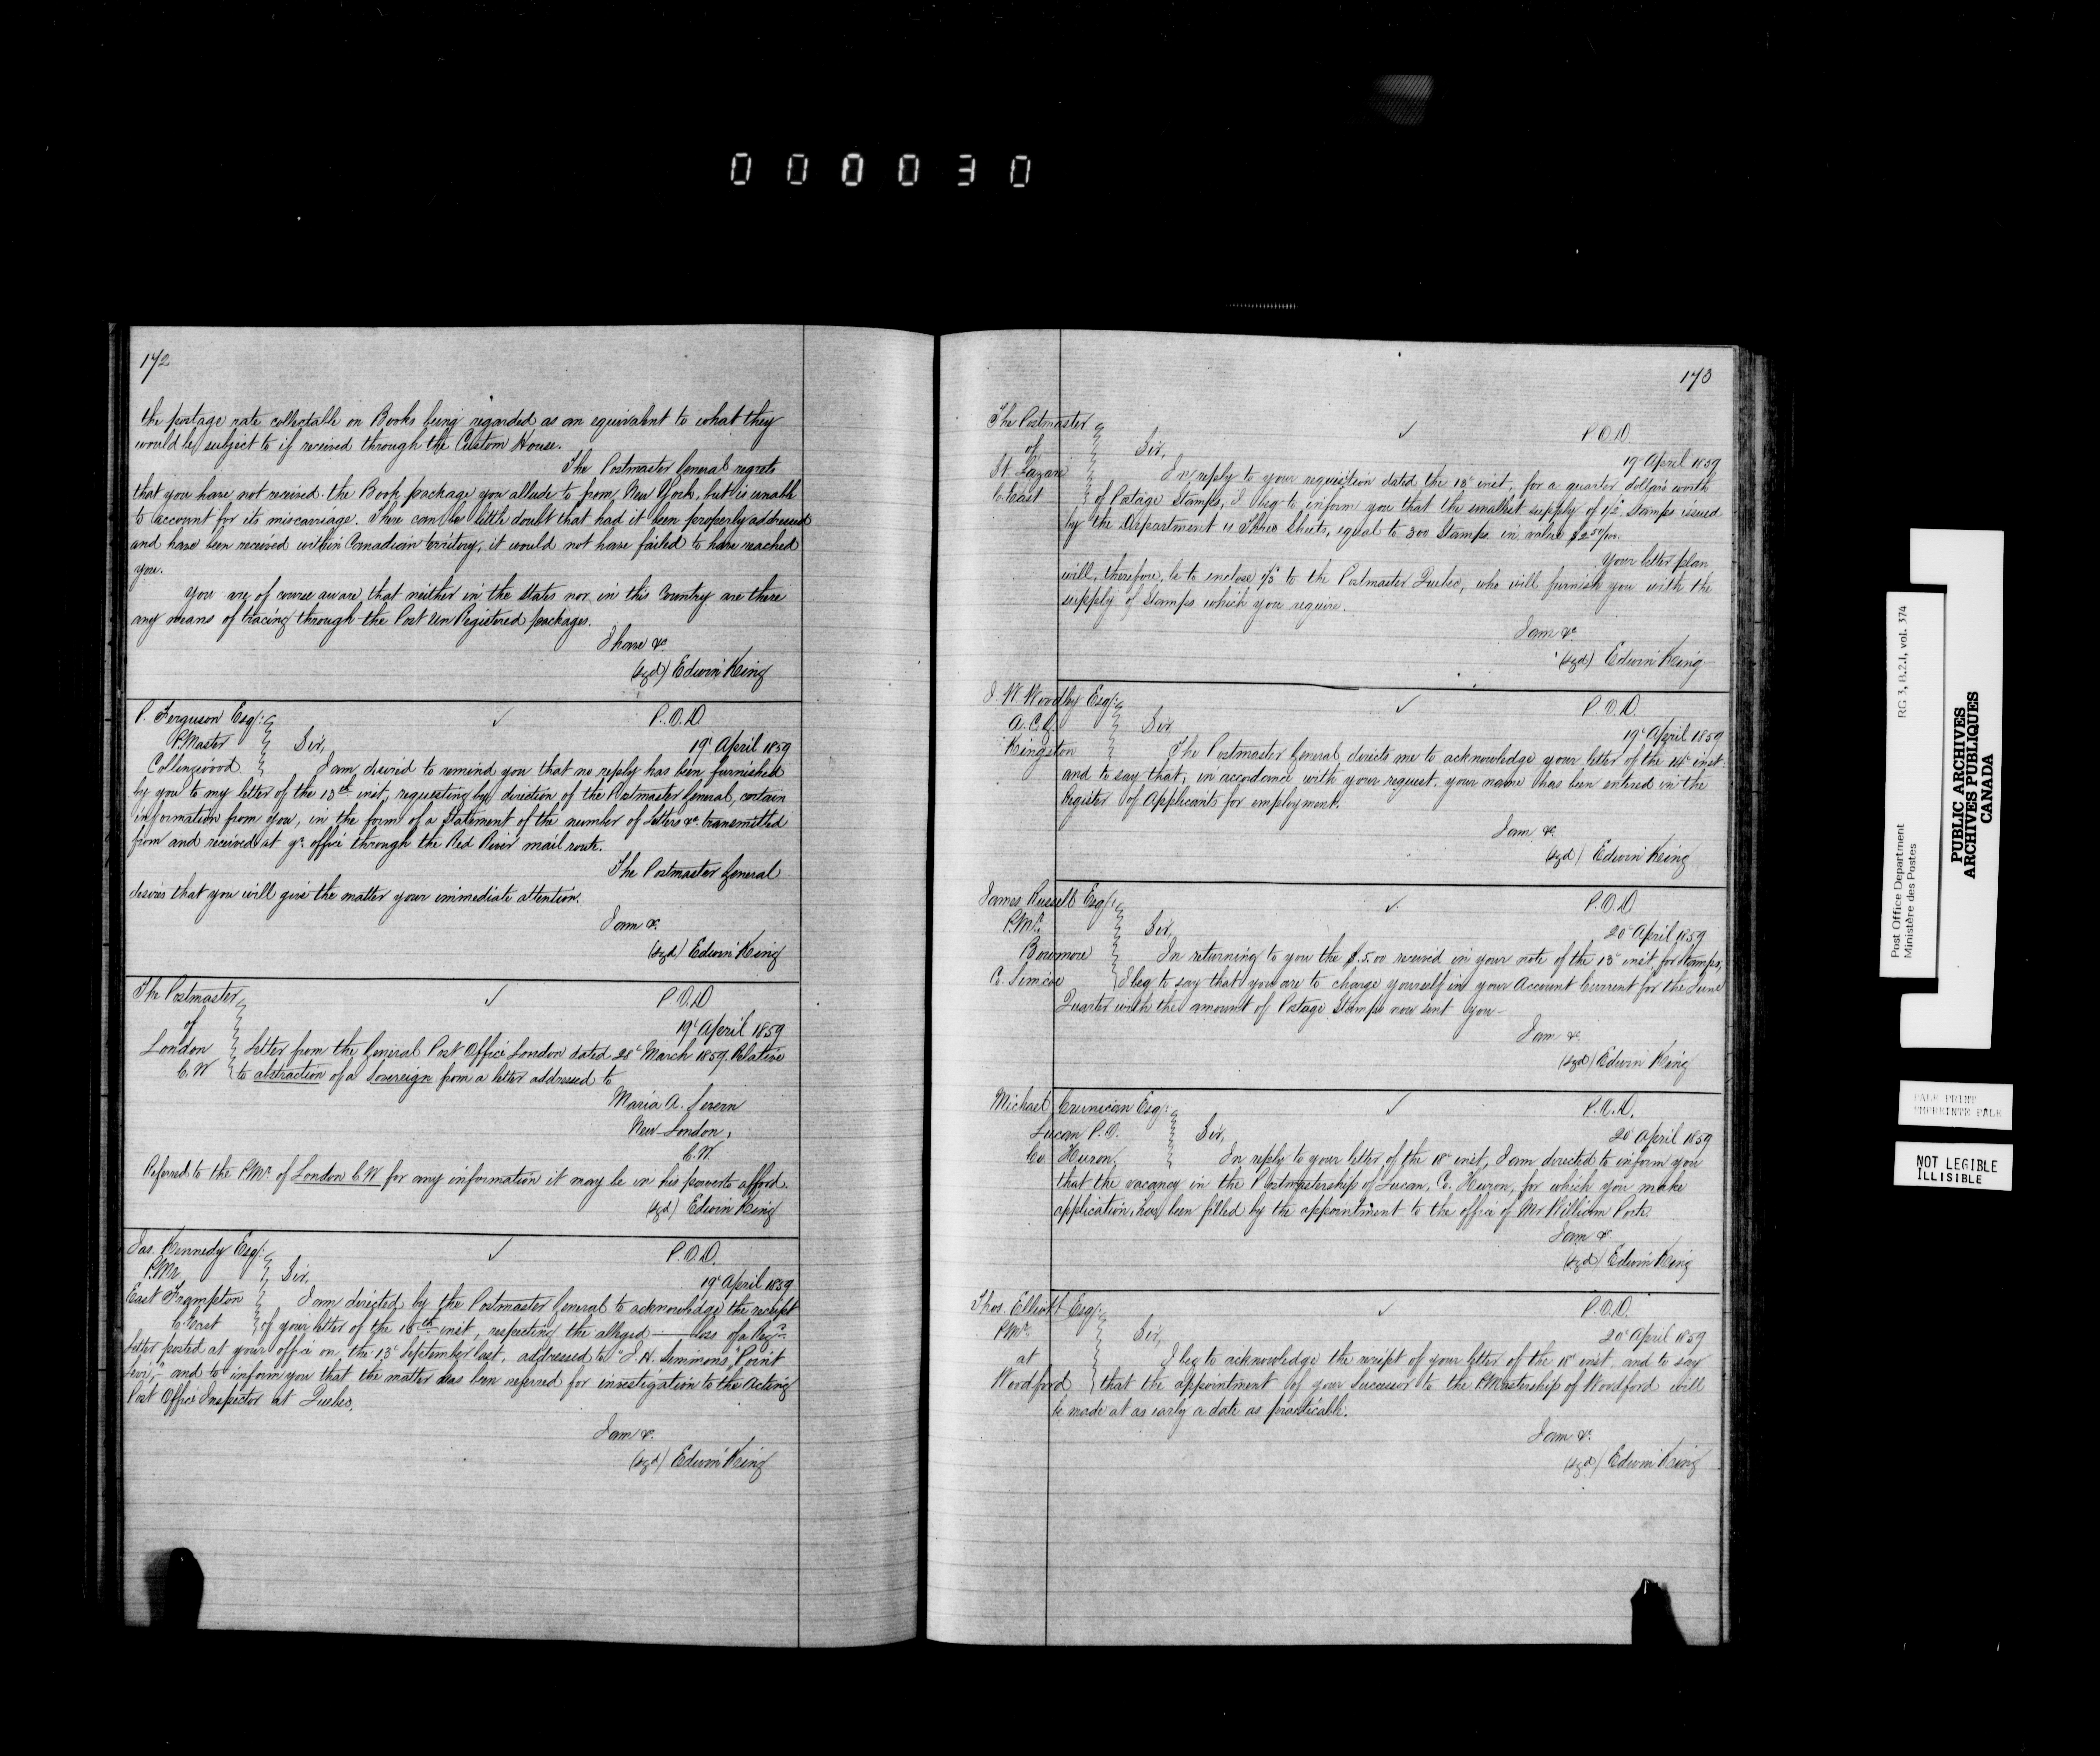 000030
172
the postage rate collectable on Books being regarded as an equivalent to what they
would be subject to if received through the Custom House.
The Postmaster General regrets
that you have not received the Book package you allude to from New York, but is unable
to account for its miscarriage. There can be little doubt that had it been properly addressed
and have been received within Canadian territory, it would not have failed to have reached
you.
You are of course aware that neither in the States nor in this Country are there
any means of tracing through the Post Un Registered packages.
I have &c
(sgd) Edwin King
P. Ferguson Esqr. P.O.D.
P.Master Sir, 19th April 1859
Collingwood I am desired to remind you that no reply has been furnished
by you to my letter of the 13th inst, requesting by direction of the Postmaster General, certain
information from you, in the form of a Statement of the number of Letters &c. transmitted
from and received at yr. office through the Red River mail route.
The Postmaster General
desires that you will give the matter your immediate attention.
I am &c.
(sgd) Edwin King
The Postmaster P.O.D
of 19th April 1859
London Letter from the General Post Office London dated 28th March 1859. Relative
C.W to abstraction of a Sovereign from a letter addressed to
Maria A. Severn
New London,
C.W.
Referred to the P.Mr. of London C.W for any information it may be in his power to afford.
(sgd) Edwin King
Jas. Kennedy Esqr. P.O.D.
P.Mr Sir, 19th April 1859
East Frampton I am directed by the Postmaster General to acknowledge the receipt
C. East of your letter of the 15th inst, respecting the alleged loss of a Regd.
letter posted at your office on the 13th September last, addressed to "J. H. Simmons, Point
Levi," and to inform you that the matter has been referred for investigation to the Acting
Post Office Inspector at Quebec.
I am &c.
(sgd) Edwin King
173
The Postmaster P.O.D
of Sir, 19th April 1859
St. Lazare In reply to your requisition dated the 13th inst, for a quarter dollars worth
C. East of Postage Stamps, I beg to inform you that the smallest supply of 1/2d Stamps issued
by the Department is Three Sheets, equal to 300 Stamps in value
Your letter plan,
will, therefore, be to enclose to the Postmaster Quebec, who will furnish you with the
supply of Stamps which you require.
I am &c
(sgd) Edwin King
J W Woodby Esqr. P.O.D.
Sir 19th April 1859
Kingston The Postmaster General directs me to acknowledge your letter of the 14th inst.
and to say that, in accordance with your request, your name has been entered in the
Register of Applicants for employment.
I am &c.
(sgd) Edwin King
James Russell Esqr. P.O.D
P.Mr. Sir, 20th April 1859
Bowmore In returning to you the $5.00 received in your note of the 13th inst, for Stamps,
C. Simcoe I beg to say that you are to charge yourself in your Account Current for the June
Quarter with the amount of Postage Stamps now sent you—
I am &c.
(sgd) Edwin King
Michael Crunican Esqr. P.O.D.
Lucan P.O. Sir, 20th April 1859
Co. Huron, In reply to your letter of the 18th inst, I am directed to inform you
that the vacancy in the Postmastership of Lucan, Co. Huron, for which you make
application, has been filled by the appointment to the office of Mr William Porte.
I am &c
(sgd) Edwin King
Thos. Elliott Esqr. P.O.D.
P.Mr. Sir, 20th April 1859
at I beg to acknowledge the receipt of your letter of the 18th inst. and to say
Woodford that the appointment of your Successor to the P.Mastership of Woodford will
be made at as early a date as practicable.
I am &c.
(sgd) Edwin King
Post Office Department RG 3, B.2.1, vol. 374
Ministère des Postes
PUBLIC ARCHIVES
ARCHIVES PUBLIQUES
CANADA
PALE PRINT
EMPREINTE PALE
NOT LEGIBLE
ILLISIBLE